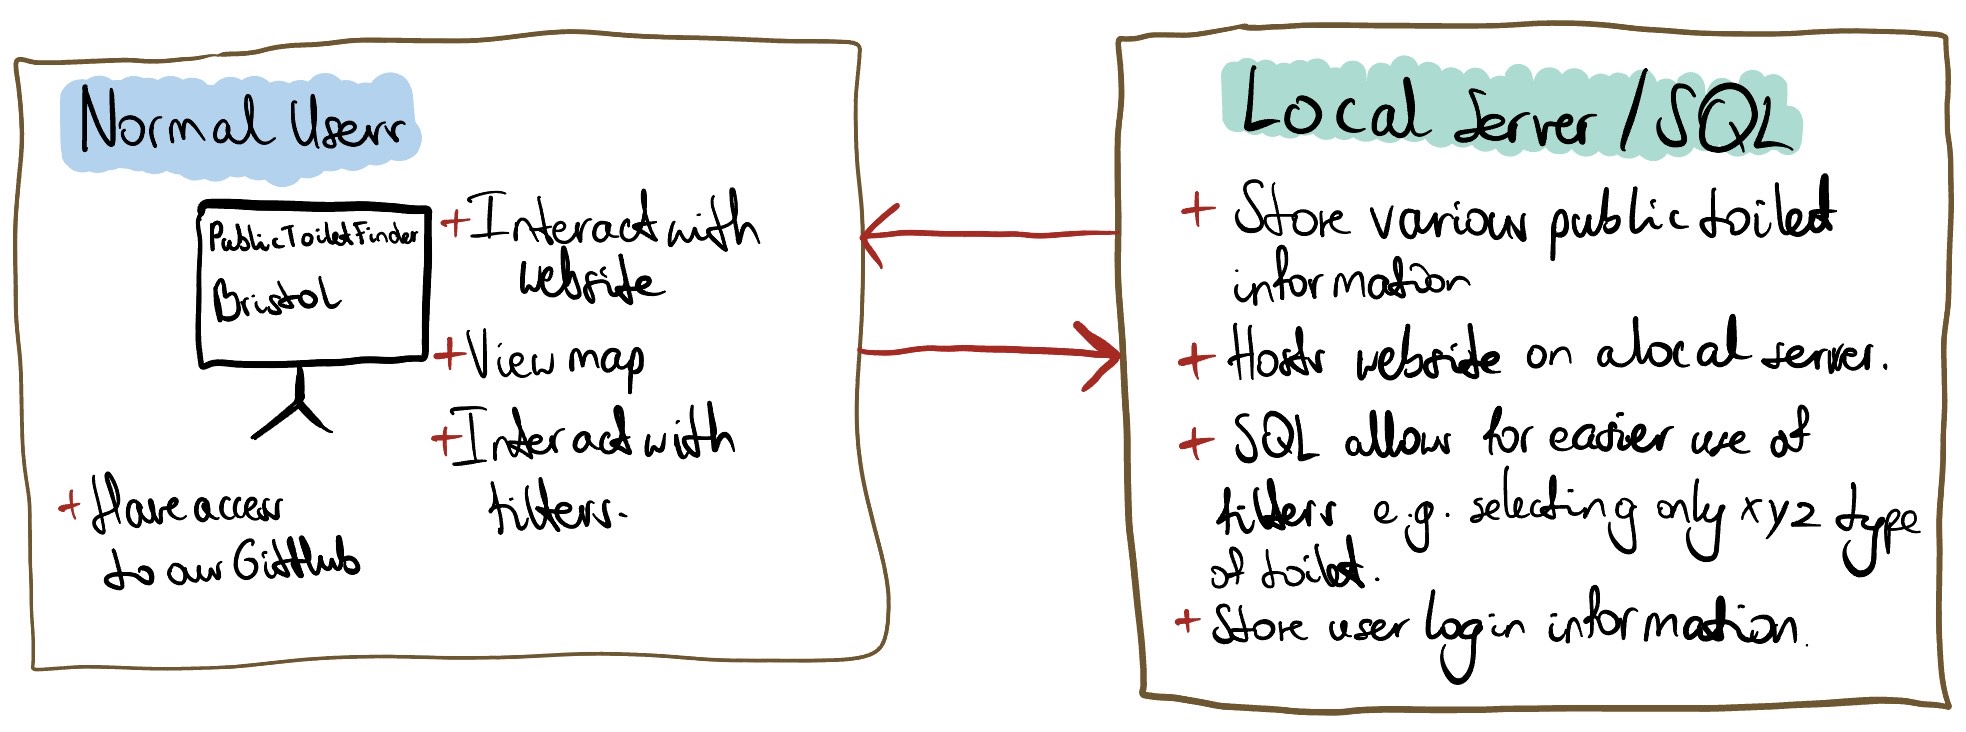 Normal Userr
PublicToiletFinder
Bristol
+ Interact with
website
+ View map
+ Interact with
filters.
+ Have access
to our GitHub
Local Server / SQL
+ Store various public toilet
information
+ Hosts website on a local server.
+ SQL allows for easier use of
filters e.g. selecting only xyz type
of toilet.
+ Store user login information.